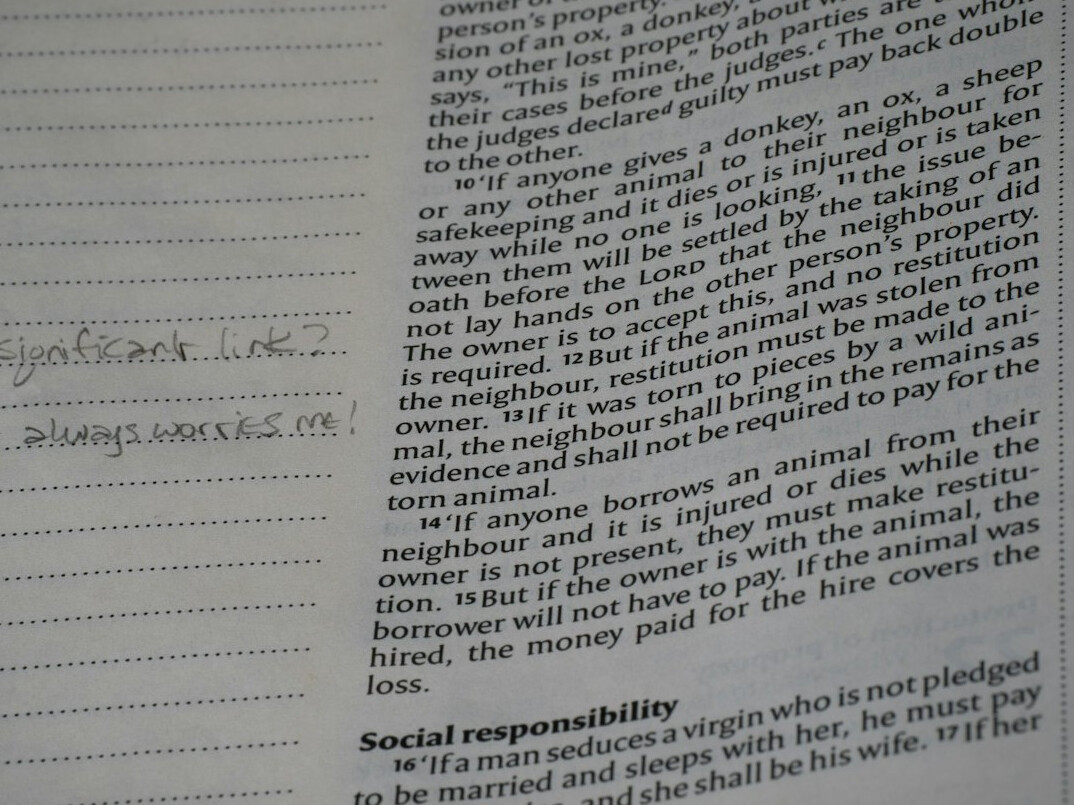 significant link?
always worries me!
owner
person's property.
sion of an ox, a donkey,
any other lost property about
says, “This is mine,” both parties are
their cases before the judges.c The one whom
the judges declared guilty must pay back double
to the other.
10 ‘If anyone gives a donkey, an ox, a sheep
or any other animal to their neighbour for
safekeeping and it dies or is injured or is taken
away while no one is looking, 11 the issue be-
tween them will be settled by the taking of an
oath before the LORD that the neighbour did
not lay hands on the other person's property.
The owner is to accept this, and no restitution
is required. 12 But if the animal was stolen from
the neighbour, restitution must be made to the
owner. 13 If it was torn to pieces by a wild ani-
mal, the neighbour shall bring in the remains as
evidence and shall not be required to pay for the
torn animal.
14 ‘If anyone borrows an animal from their
neighbour and it is injured or dies while the
owner is not present, they must make restitu-
tion. 15 But if the owner is with the animal, the
borrower will not have to pay. If the animal was
hired, the money paid for the hire covers the
loss.
Social responsibility
16 ‘If a man seduces a virgin who is not pledged
to be married and sleeps with her, he must pay
and she shall be his wife. 17 If her